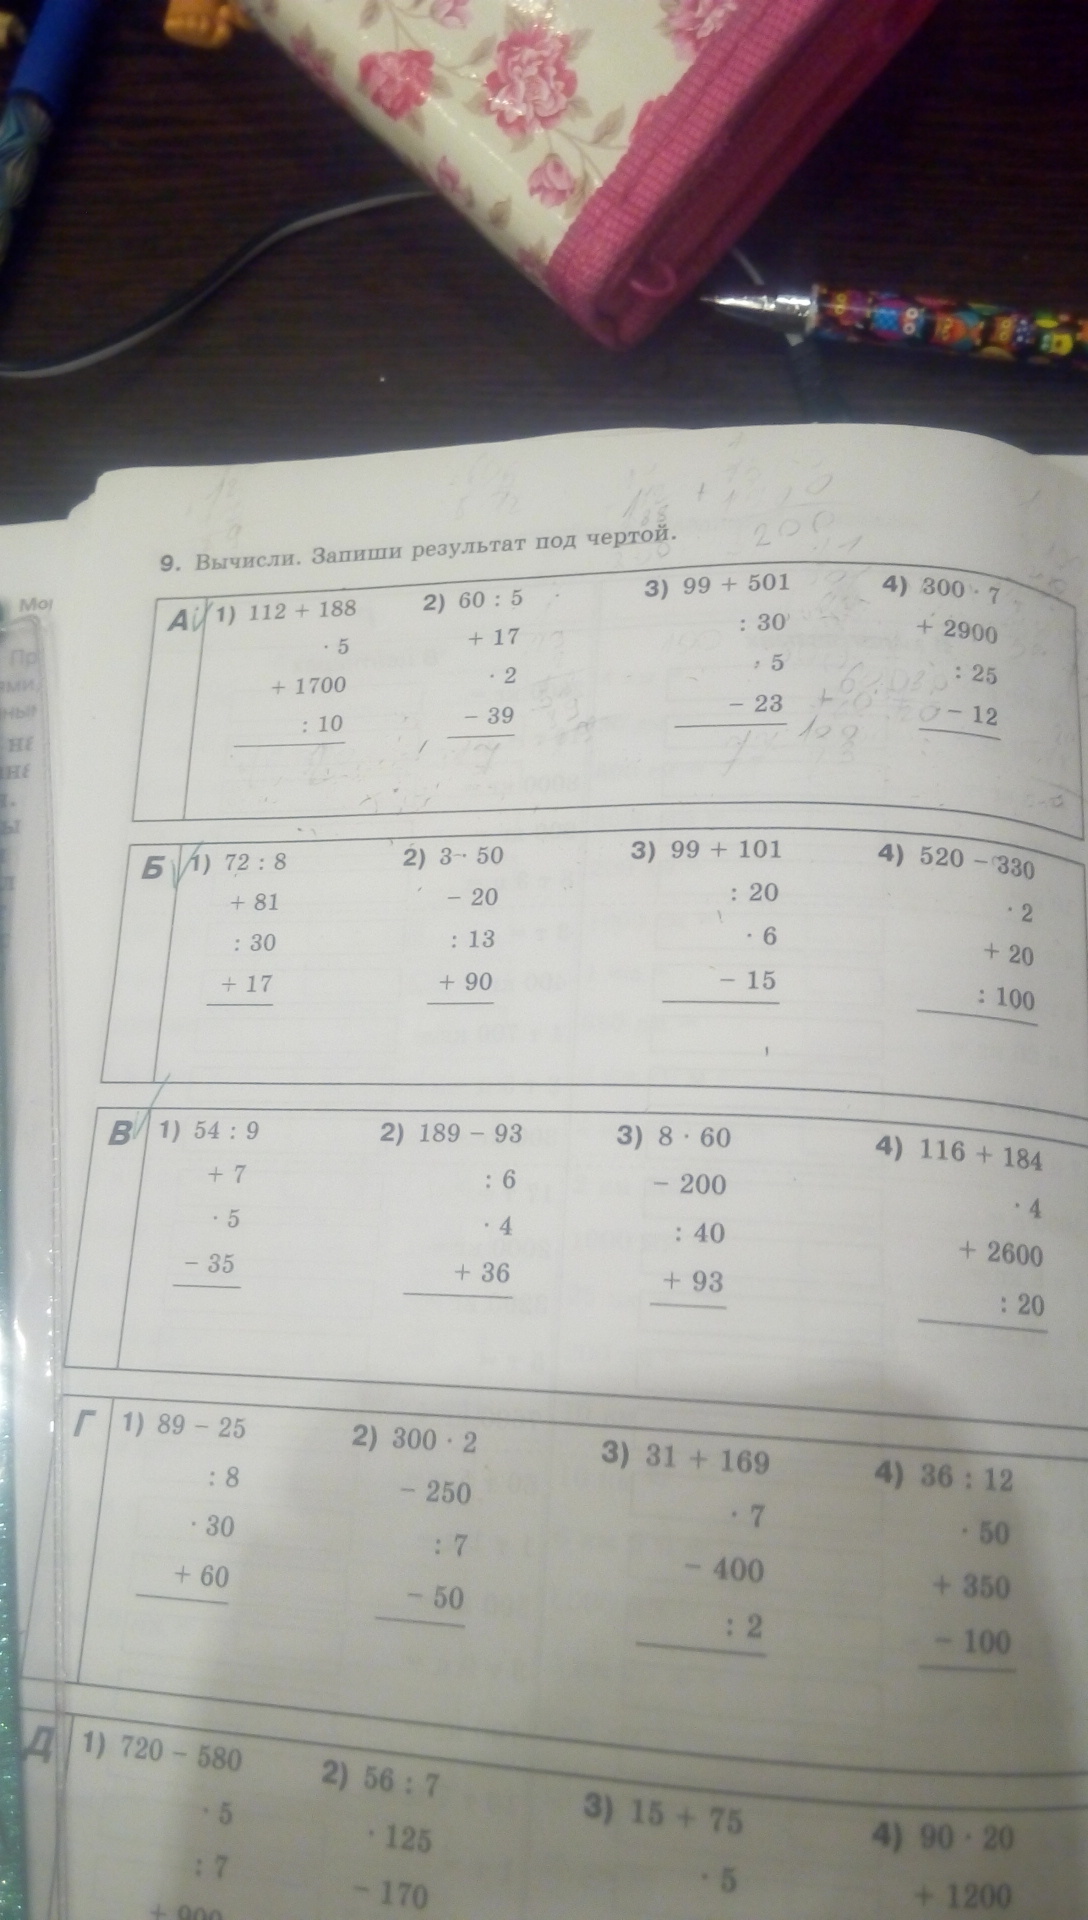 9. Вычисли. Запиши результат под чертой.
А
1) 112 + 188
· 5
+ 1700
: 10
2) 60 : 5
+ 17
· 2
− 39
3) 99 + 501
: 30
· 5
− 23
4) 300 · 7
+ 2900
: 25
− 12
Б
1) 72 : 8
+ 81
: 30
+ 17
2) 3 · 50
− 20
: 13
+ 90
3) 99 + 101
: 20
· 6
− 15
4) 520 − 330
· 2
+ 20
: 100
В
1) 54 : 9
+ 7
· 5
− 35
2) 189 − 93
: 6
· 4
+ 36
3) 8 · 60
− 200
: 40
+ 93
4) 116 + 184
· 4
+ 2600
: 20
Г
1) 89 − 25
: 8
· 30
+ 60
2) 300 · 2
− 250
: 7
− 50
3) 31 + 169
· 7
− 400
: 2
4) 36 : 12
· 50
+ 350
− 100
Д
1) 720 − 580
· 5
: 7
+ 900
2) 56 : 7
· 125
− 170
3) 15 + 75
· 5
4) 90 · 20
+ 1200